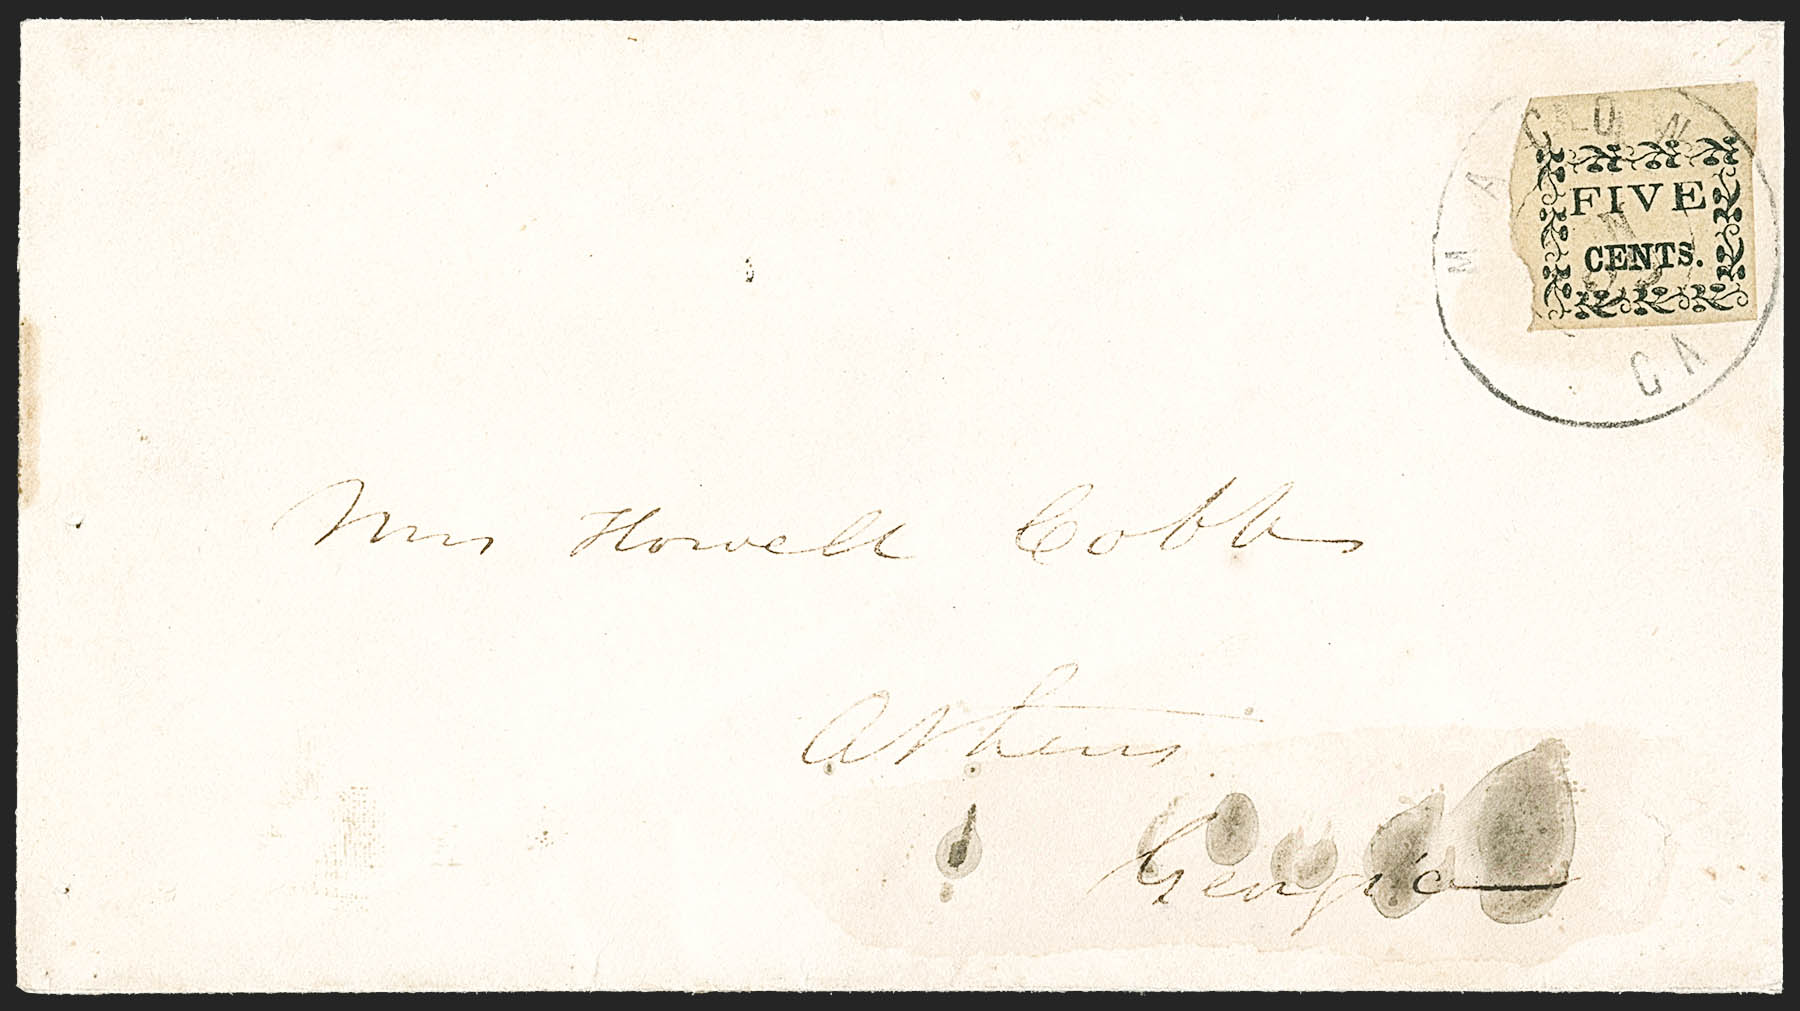 MACON
GA
FIVE
CENTS.
Mrs Howell Cobb
Athens
Georgia